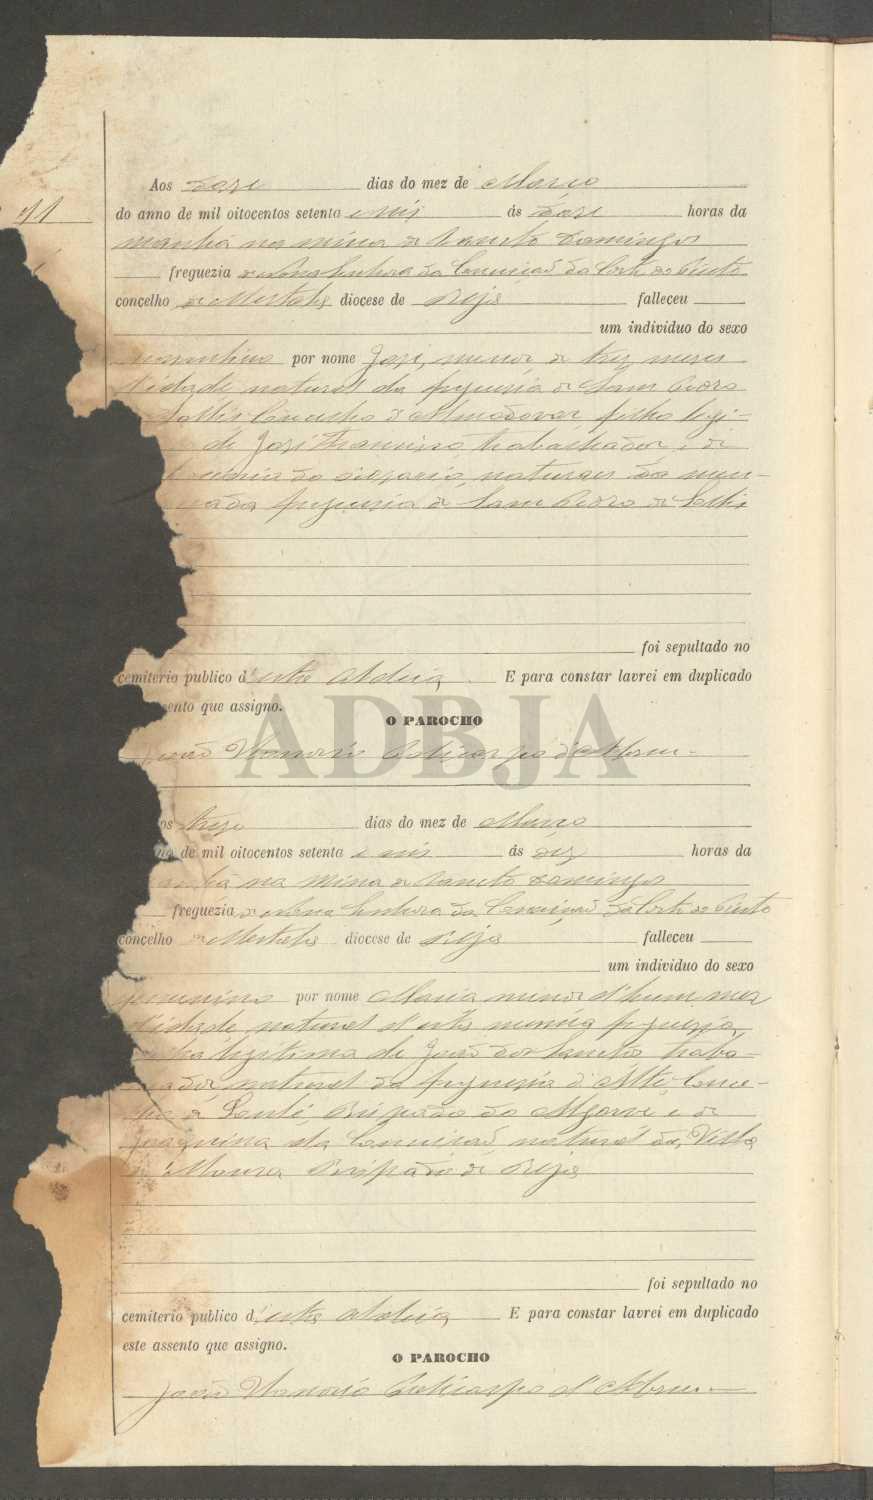 Aos doze dias do mez de Março
11
do anno de mil oitocentos setenta e seis ás doze horas da
manhã na mina de Sancto Domingos
freguezia de Nossa Senhora da Conceição da Corte do Pinto
concelho de Mertola diocese de Beja falleceu
um individuo do sexo
masculino por nome José, menor de trez mezes
d'idade natural da freguezia de Sam Pedro
Concelho d'Almodovar filho legi-
de José Francisco, trabalhador, e de
do Rozario, naturaes da men-
freguezia de Sam Pedro de
foi sepultado no
cemiterio publico d'esta Aldeia E para constar lavrei em duplicado
sento que assigno.
O PAROCHO
João Honorio Policarpo d'Abreu
ADBJA
os treze dias do mez de Março
de mil oitocentos setenta e seis ás dez horas da
manhã na Mina de Sancto Domingos
freguezia de Nossa Senhora da Conceição da Corte do Pinto
concelho de Mertola diocese de Beja falleceu
um individuo do sexo
femenino por nome Maria menor d'hum mez
d'idade natural d'esta mesma freguezia,
filha legitima de João dos Sanctos traba-
ador, natural da freguezia d'Alte, Conce-
lho de Loulé, Bispado do Algarve e de
Joaquina da Conceição natural da Villa
de Moura Bispado de Beja
foi sepultado no
cemiterio publico d'esta Aldeia E para constar lavrei em duplicado
este assento que assigno.
O PAROCHO
João Honorio Policarpo d'Abreu